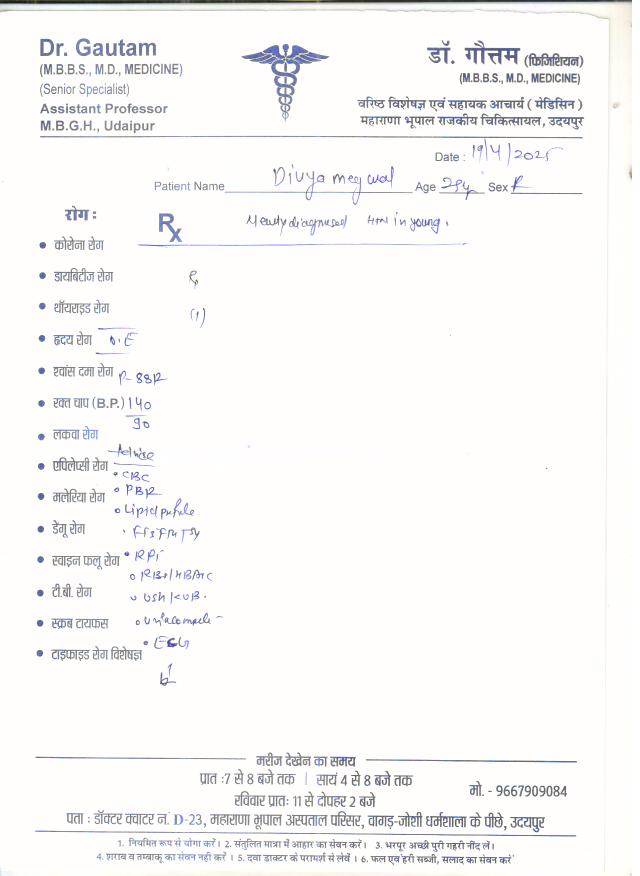 Dr. Gautam
(M.B.B.S., M.D., MEDICINE)
(Senior Specialist)
Assistant Professor
M.B.G.H., Udaipur
डॉ. गौत्तम (फिजिशियन)
(M.B.B.S., M.D., MEDICINE)
वरिष्ठ विशेषज्ञ एवं सहायक आचार्य ( मेडिसिन )
महाराणा भूपाल राजकीय चिकित्सायल, उदयपुर
Date : 19/4/2025
Patient Name Divya megwal Age Sex F
रोग :
Rx Newly diagnosed HTN in young.
कोरोना रोग
डायबिटीज रोग
थॉयराइड रोग (1)
हृदय रोग O.E
श्वांस दमा रोग P-88
रक्त चाप (B.P.) 140/90
लकवा रोग
एपिलेप्सी रोग Advice
• CBC
मलेरिया रोग
Lipid profile
डेंगू रोग
स्वाइन फलू रोग
टी.बी. रोग
स्क्रब टायफस
• ECG
टाइफाइड रोग विशेषज्ञ
मरीज देखेन का समय
प्रात :7 से 8 बजे तक | सायं 4 से 8 बजे तक
रविवार प्रातः 11 से दोपहर 2 बजे
मो. - 9667909084
पता : डॉक्टर क्वाटर नं. D-23, महाराणा भूपाल अस्पताल परिसर, वागड़-जोशी धर्मशाला के पीछे, उदयपुर
1. नियमित रूप से योगा करें। 2. संतुलित मात्रा में आहार का सेवन करें। 3. भरपूर अच्छी पुरी गहरी नींद लें।
4. शराब व तम्बाकू का सेवन नही करें । 5. दवा डाक्टर के परामर्श से लेवें । 6. फल एवं हरी सब्जी, सलाद का सेवन करें